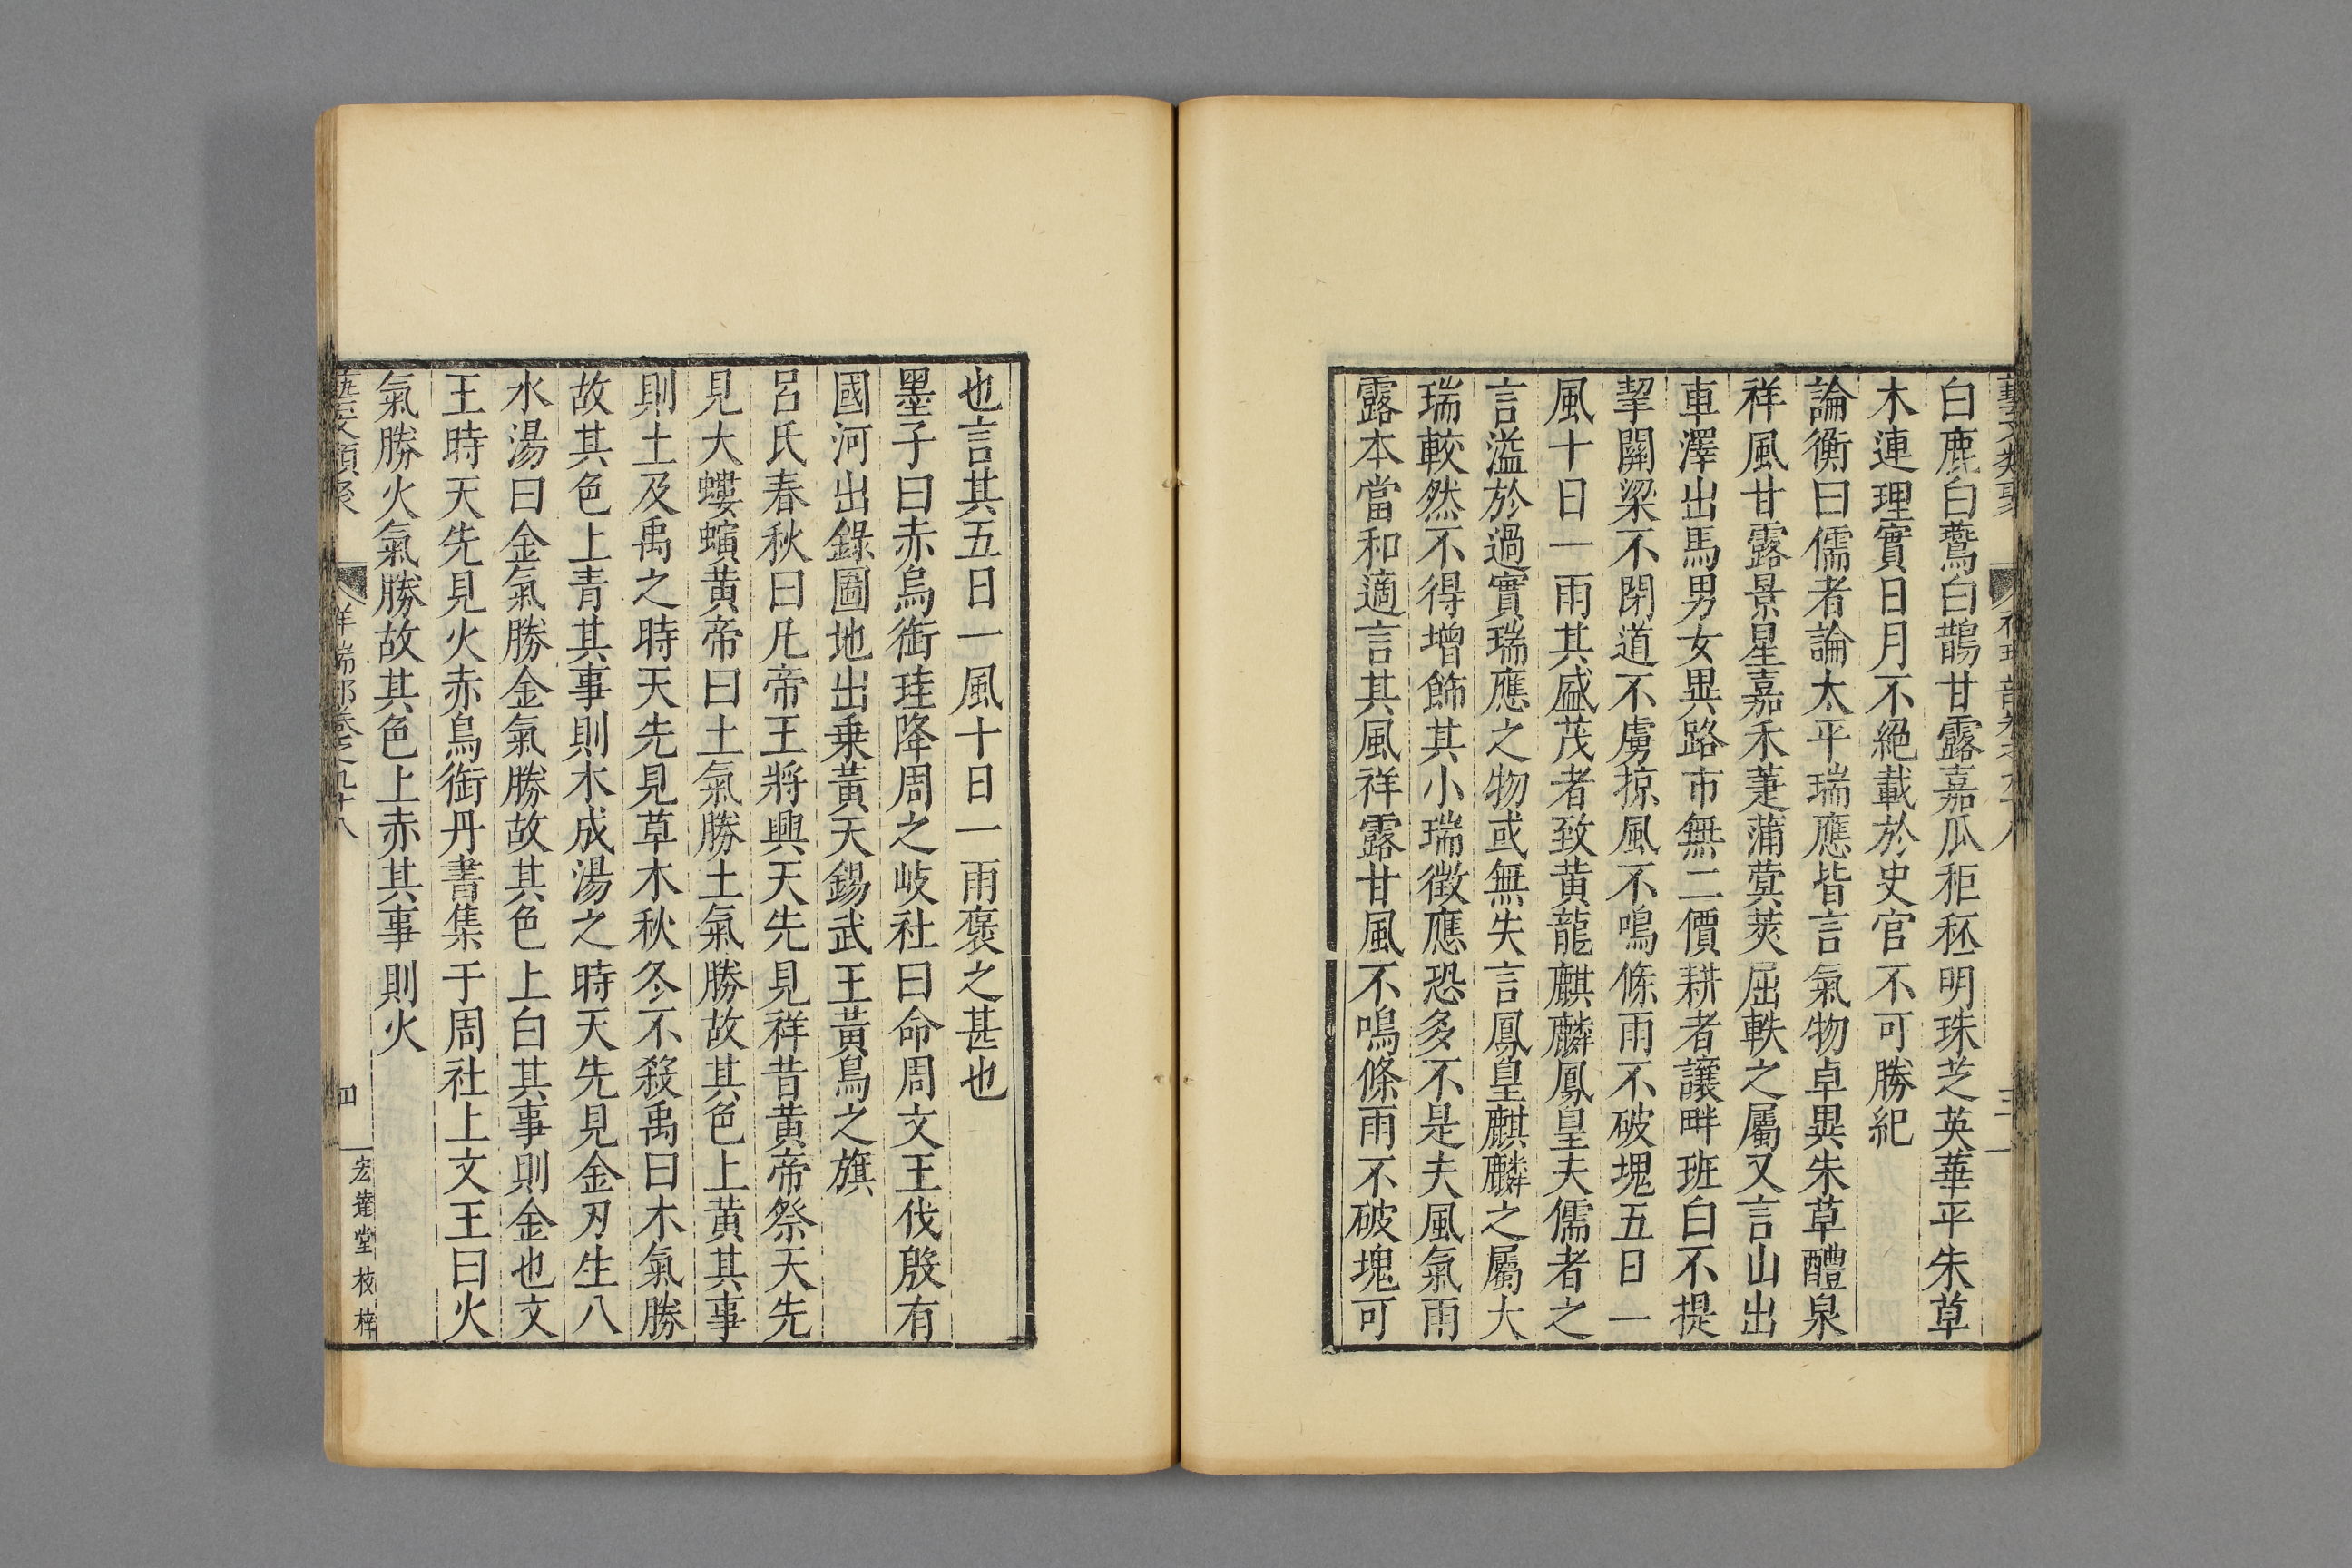 藝文類聚 祥瑞部卷之九十八 三
白鹿白鷰白鵲甘露嘉瓜秬秠明珠芝英華平朱草
木連理實日月不絕載於史官不可勝紀
論衡曰儒者論太平瑞應皆言氣物卓異朱草醴泉
祥風甘露景星嘉禾萐蒲蓂莢屈軼之屬又言山出
車澤出馬男女異路市無二價耕者讓畔班白不提
挈關梁不閉道不虜掠風不鳴條雨不破塊五日一
風十日一雨其盛茂者致黄龍麒麟鳳皇夫儒者之
言溢於過實瑞應之物或無失言鳳皇麒麟之屬大
瑞較然不得增飾其小瑞徵應恐多不是夫風氣雨
露本當和適言其風祥露甘風不鳴條雨不破塊可
也言其五日一風十日一雨褒之甚也
墨子曰赤烏銜珪降周之岐社曰命周文王伐殷有
國河出錄圖地出乗黃天錫武王黃鳥之旗
呂氏春秋曰凡帝王將興天先見祥昔黃帝祭天先
見大螻螾黃帝曰土氣勝土氣勝故其色上黃其事
則土及禹之時天先見草木秋冬不殺禹曰木氣勝
故其色上青其事則木成湯之時天先見金刃生八
水湯曰金氣勝金氣勝故其色上白其事則金也文
王時天先見火赤烏銜丹書集于周社上文王曰火
氣勝火氣勝故其色上赤其事則火
藝文類聚 祥瑞部卷之九十八 四 宏達堂校梓